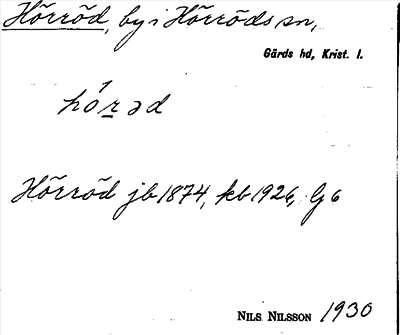 Hörröd, by i Hörröds sn,
Gärds hd, Krist. l.
hó̱rəd
Hörröd jb 1874, kb 1926, G 6
NILS NILSSON 1930